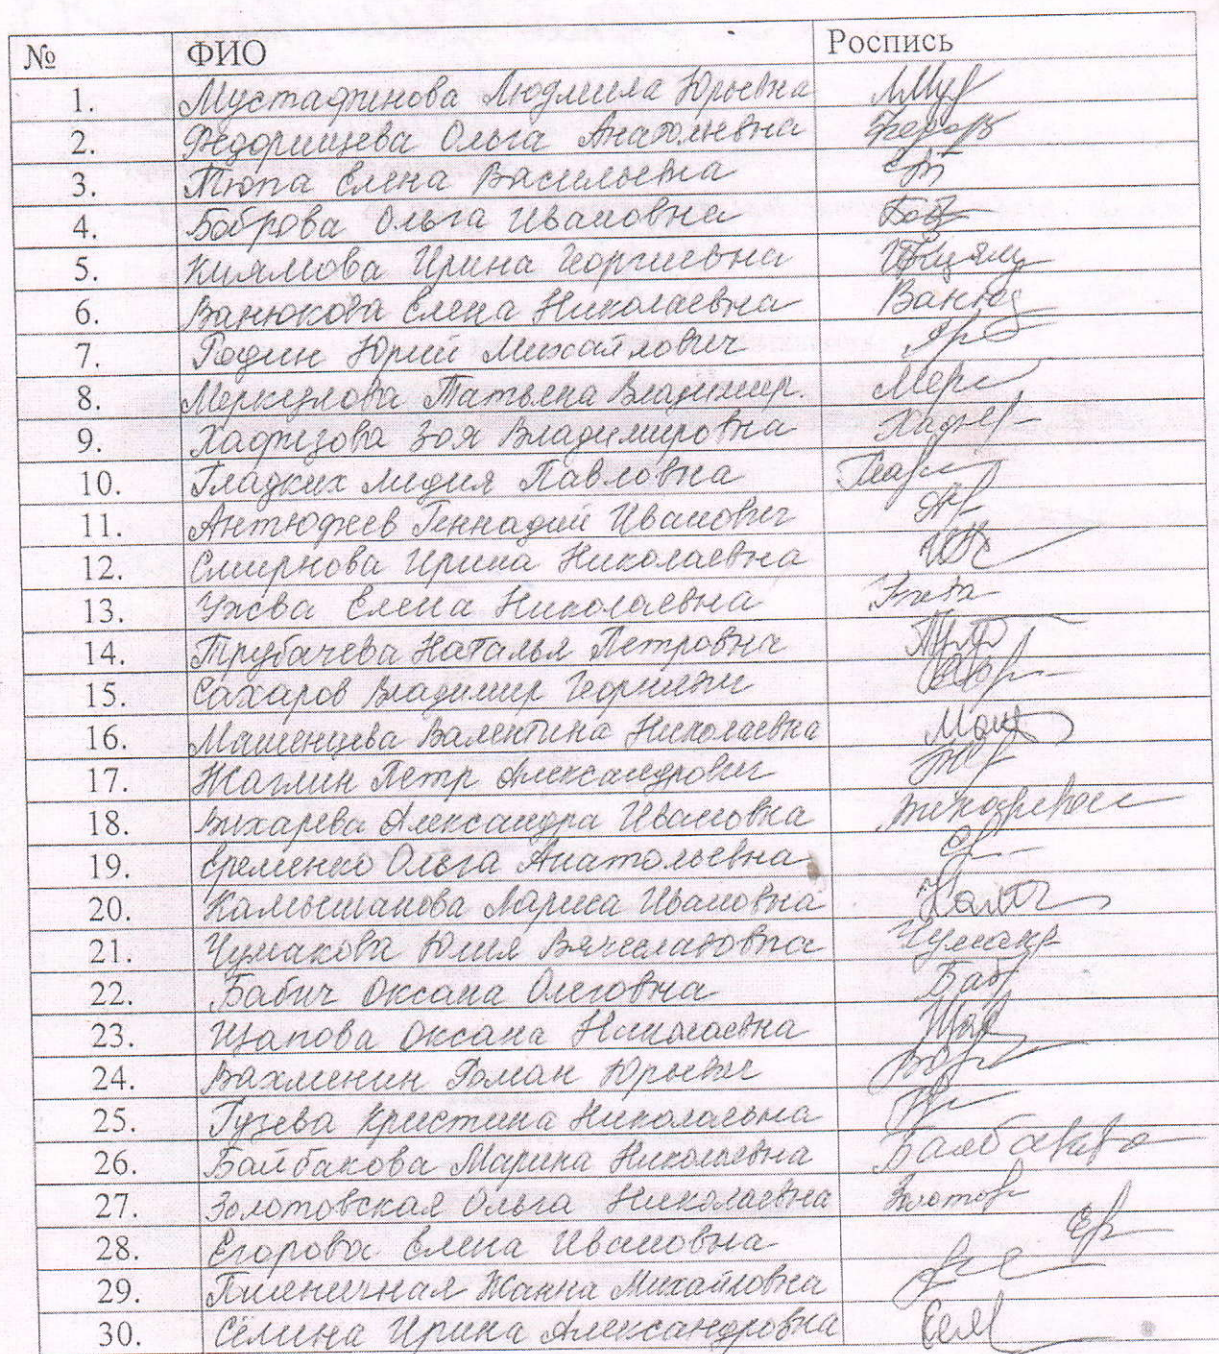 № ФИО Роспись
1. Мустафинова Людмила Юрьевна
2. Федорищева Ольга Анатольевна
3. Тюпа Елена Васильевна
4. Боброва Ольга Ивановна
5. Киямова Ирина Георгиевна
6. Ванюкова Елена Николаевна Ванюк
7. Родин Юрий Михайлович
8. Меркулова Татьяна Владимир. Мерк
9. Хафизова Зоя Владимировна
10. Гладких Лидия Павловна
11. Антюфеев Геннадий Иванович
12. Смирнова Ирина Николаевна
13. Ужва Елена Николаевна
14. Трубачева Наталья Петровна
15. Сахаров Владимир Георгиевич
16. Машенцева Валентина Николаевна
17. Жаглин Петр Александрович
18. Вихарева Александра Ивановна
19. Еременко Ольга Анатольевна
20. Камышанова Лариса Ивановна
21. Чумакова Юлия Вячеславовна
22. Бабич Оксана Олеговна Баб
23. Щапова Оксана Николаевна
24. Вахменин Роман Юрьевич
25. Гузева Кристина Николаевна
26. Байбакова Марина Николаевна Байбакова
27. Золотовская Ольга Николаевна Золотов
28. Егорова Елена Ивановна
29. Пшеничная Жанна Михайловна
30. Сёлина Ирина Александровна